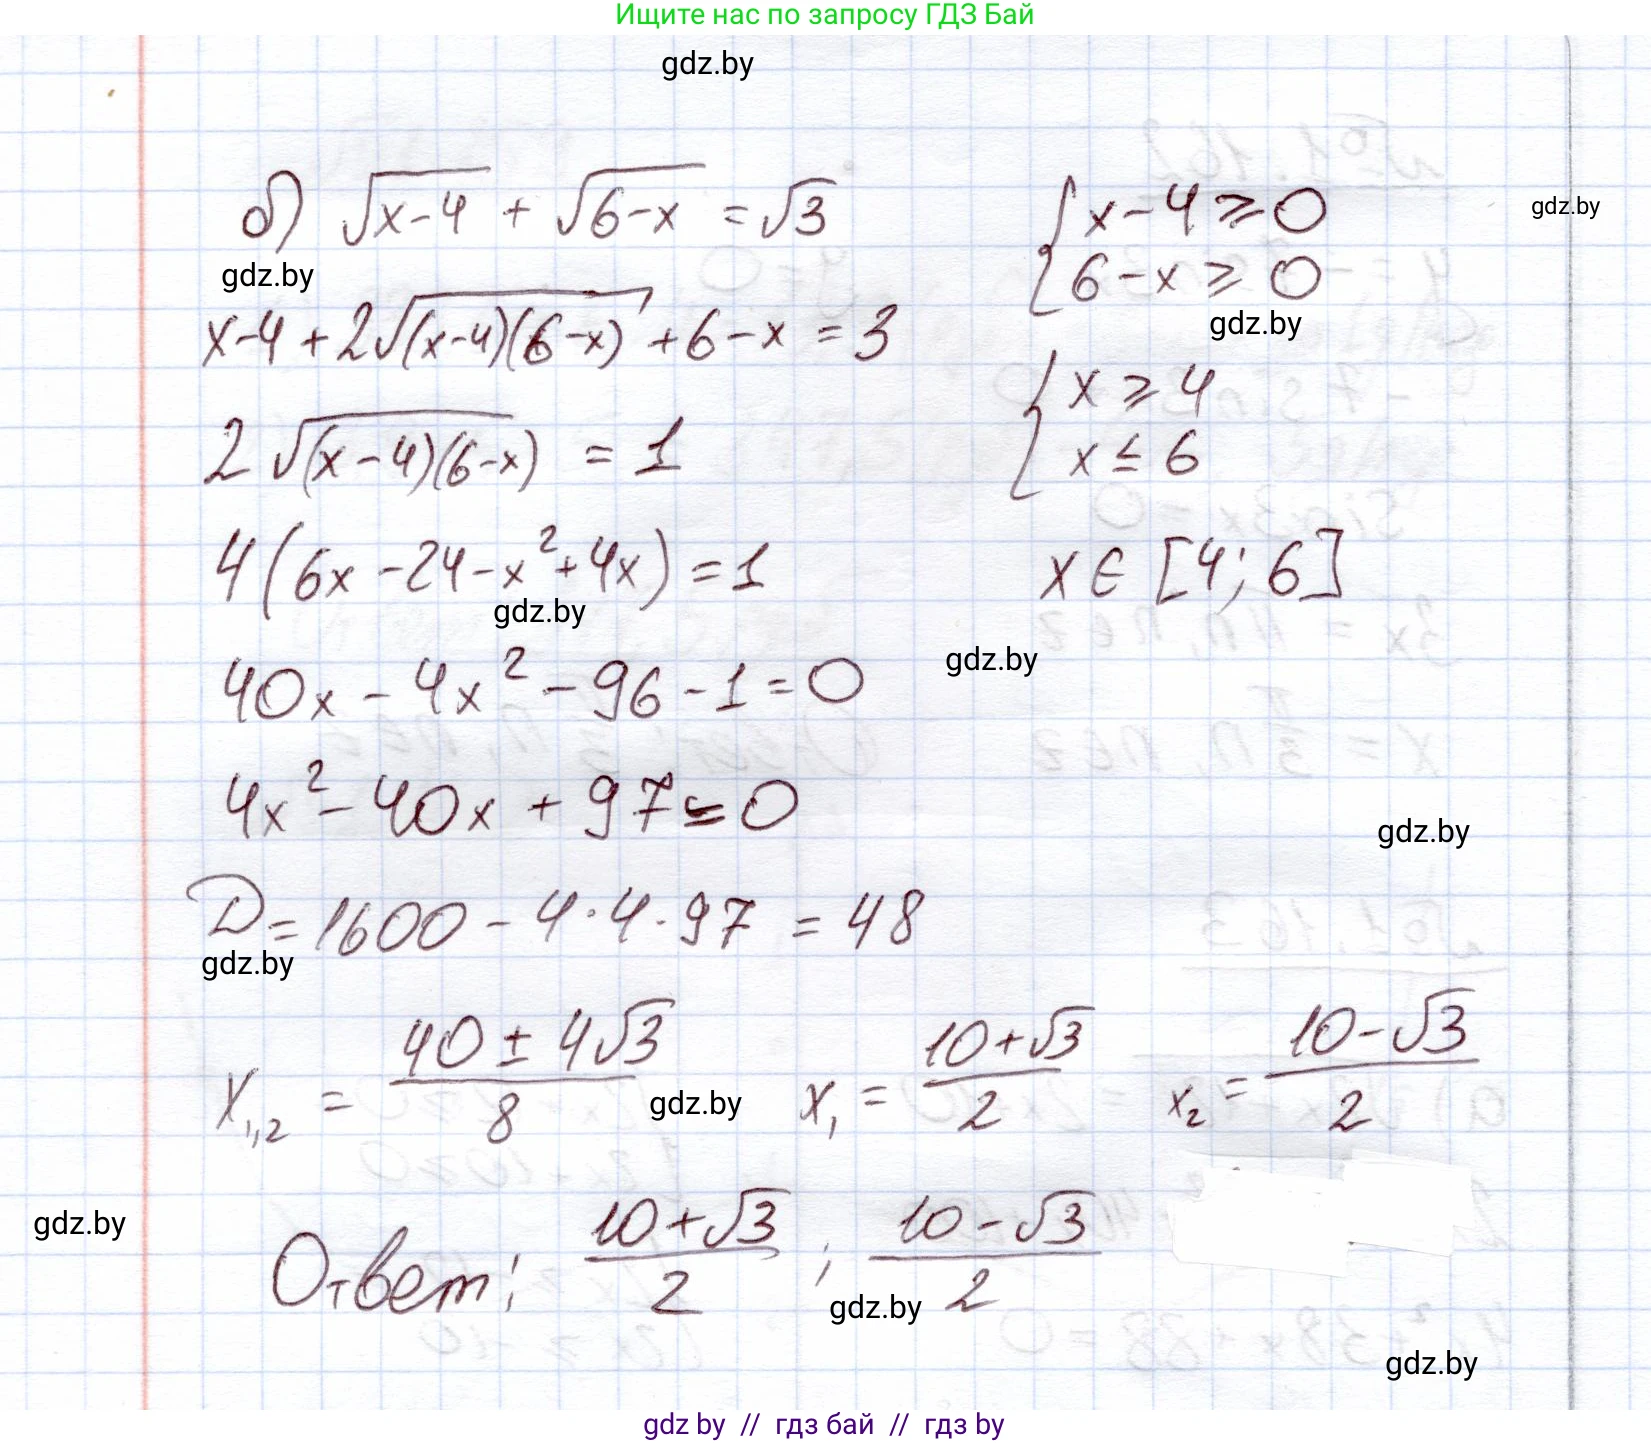 Ищите нас по запросу ГДЗ Бай
gdz.by
б) √(x-4) + √(6-x) = √3
{ x-4 ⩾ 0
gdz.by
{ 6-x ⩾ 0
gdz.by
gdz.by
x-4 + 2√((x-4)(6-x)) + 6-x = 3
{ x ⩾ 4
{ x ≤ 6
2√((x-4)(6-x)) = 1
4(6x - 24 - x² + 4x) = 1
x ∈ [4; 6]
gdz.by
gdz.by
40x - 4x² - 96 - 1 = 0
4x² - 40x + 97 = 0
gdz.by
D = 1600 - 4·4·97 = 48
gdz.by
x₁,₂ = (40 ± 4√3)/8 x₁ = (10+√3)/2 x₂ = (10-√3)/2
gdz.by
gdz.by
Ответ: (10+√3)/2 ; (10-√3)/2
gdz.by
gdz.by
gdz by // гдз бай // гдз by